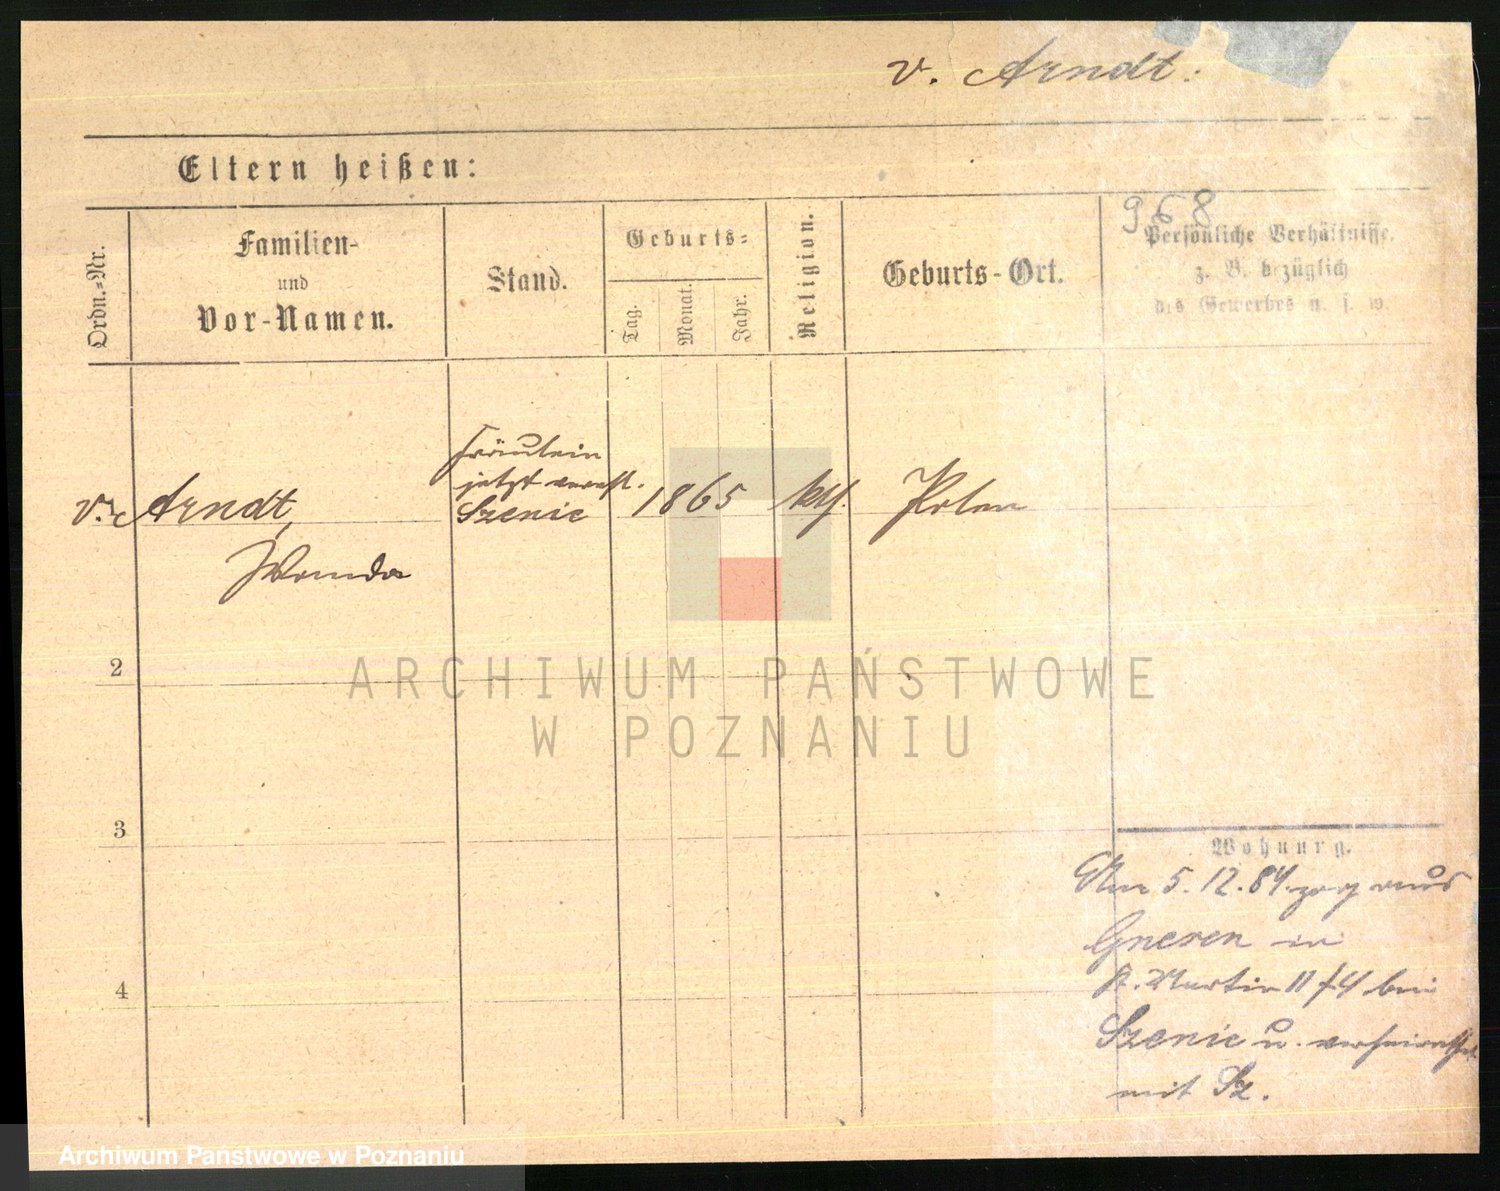 v. Arndt.
Eltern heißen:
968
Ordn.-Nr.
Familien-
und
Vor-Namen.
Stand.
Geburts-
Tag.
Monat.
Jahr.
Religion.
Geburts-Ort.
Persönliche Verhältnisse.
z. B. bezüglich
des Gewerbes u. s. w
Fräulein
jetzt verehl.
v. Arndt, Szenic 1865 kth. Polen
Wanda
2
ARCHIWUM PAŃSTWOWE
W POZNANIU
3
Wohnung.
Am 5.12.84. zog aus
Gnesen in
St. Martin 11/4 bei
4
Szenic u. verheirathet
mit Sz.
Archiwum Państwowe w Poznaniu